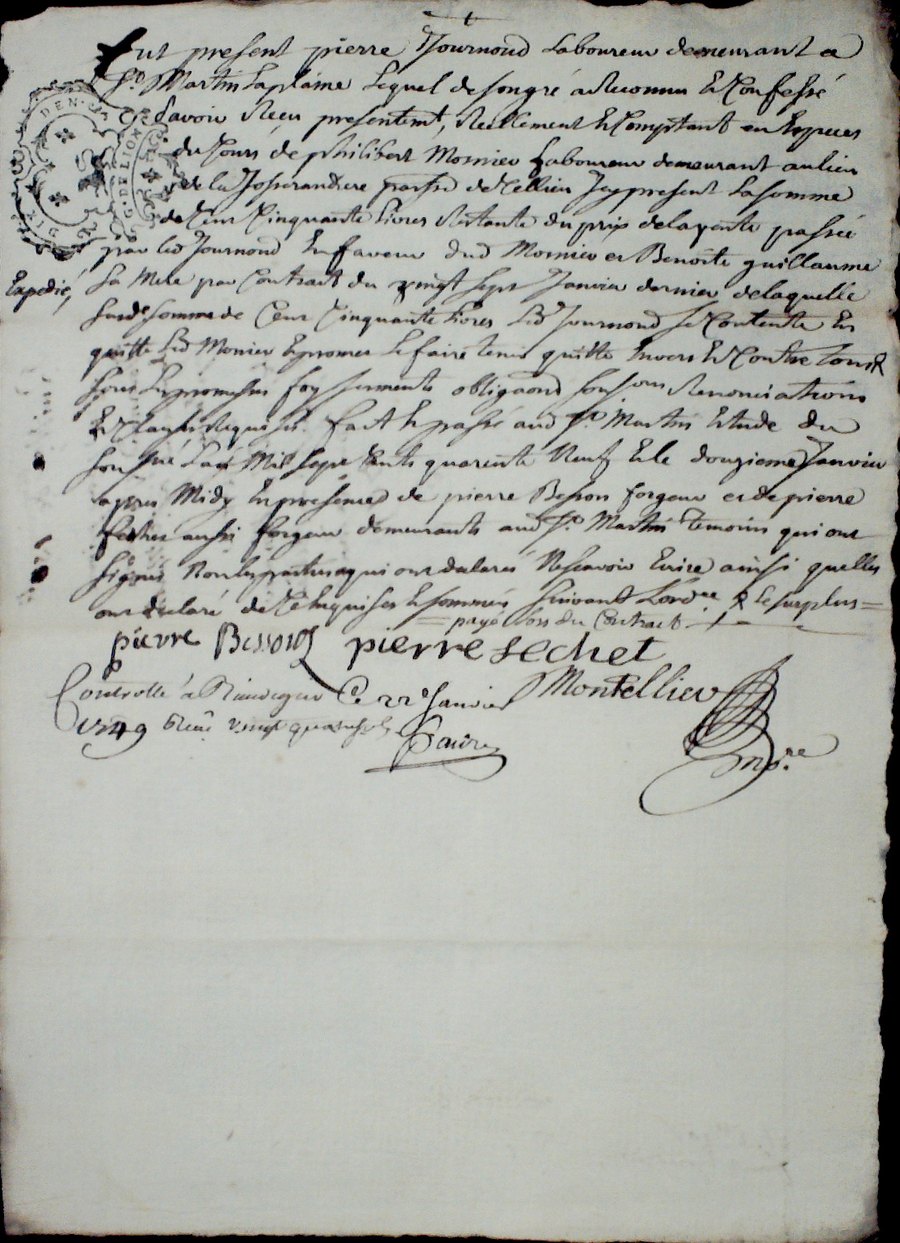 fut present pierre Journoud Laboureur demeurant a
St. Martin Laplaine Lequel de son gré a Reconnu Et Confessé
avoir Receu presentemt, Reellement Et Comptant en Especes
du Cours de philibert Monier Laboureur demeurant au lieu
de la Josserandiere parsse de Cellieu Jcy present La somme
de Cent Cinquante Livres Restante du prix de la vente passée
par led Journoud En faveur dud Monier et Benoite guillaume
Sa Mere par Contract du vingt sept Janvier dernier de laquelle
Expedié,
susde somme de Cent Cinquante Livres Led Journoud se Contente En
quitte Led Monier Et promet Le faire tenir quitte Envers Et Contre tous
sous Les promesses foy serments obligaons Renonciations
Et Clauses Requises. fait Et passé aud St. Martin Etude du
soussigné L'an Mil sept Cents quarente Neuf Et le douzieme Janvier
apres Midy En presence de pierre Besson forgeur et de pierre
Sechet aussi forgeur demeurants aud St. Martin temoins qui ont
signés Non Les parties qui ont declarés Ne scavoir Ecrire ainsi quelles
ont declaré de Ce Enquises Et sommées suivant L'ordce & Le surplus =
= payé Lors du Contract
pierre Besson pierre sechet
Controllé à Rivedegier Ce 22e Janvier Montellier
1749 Receu vingt quatre sols
Nore
DEN. SIX
G. DE LION